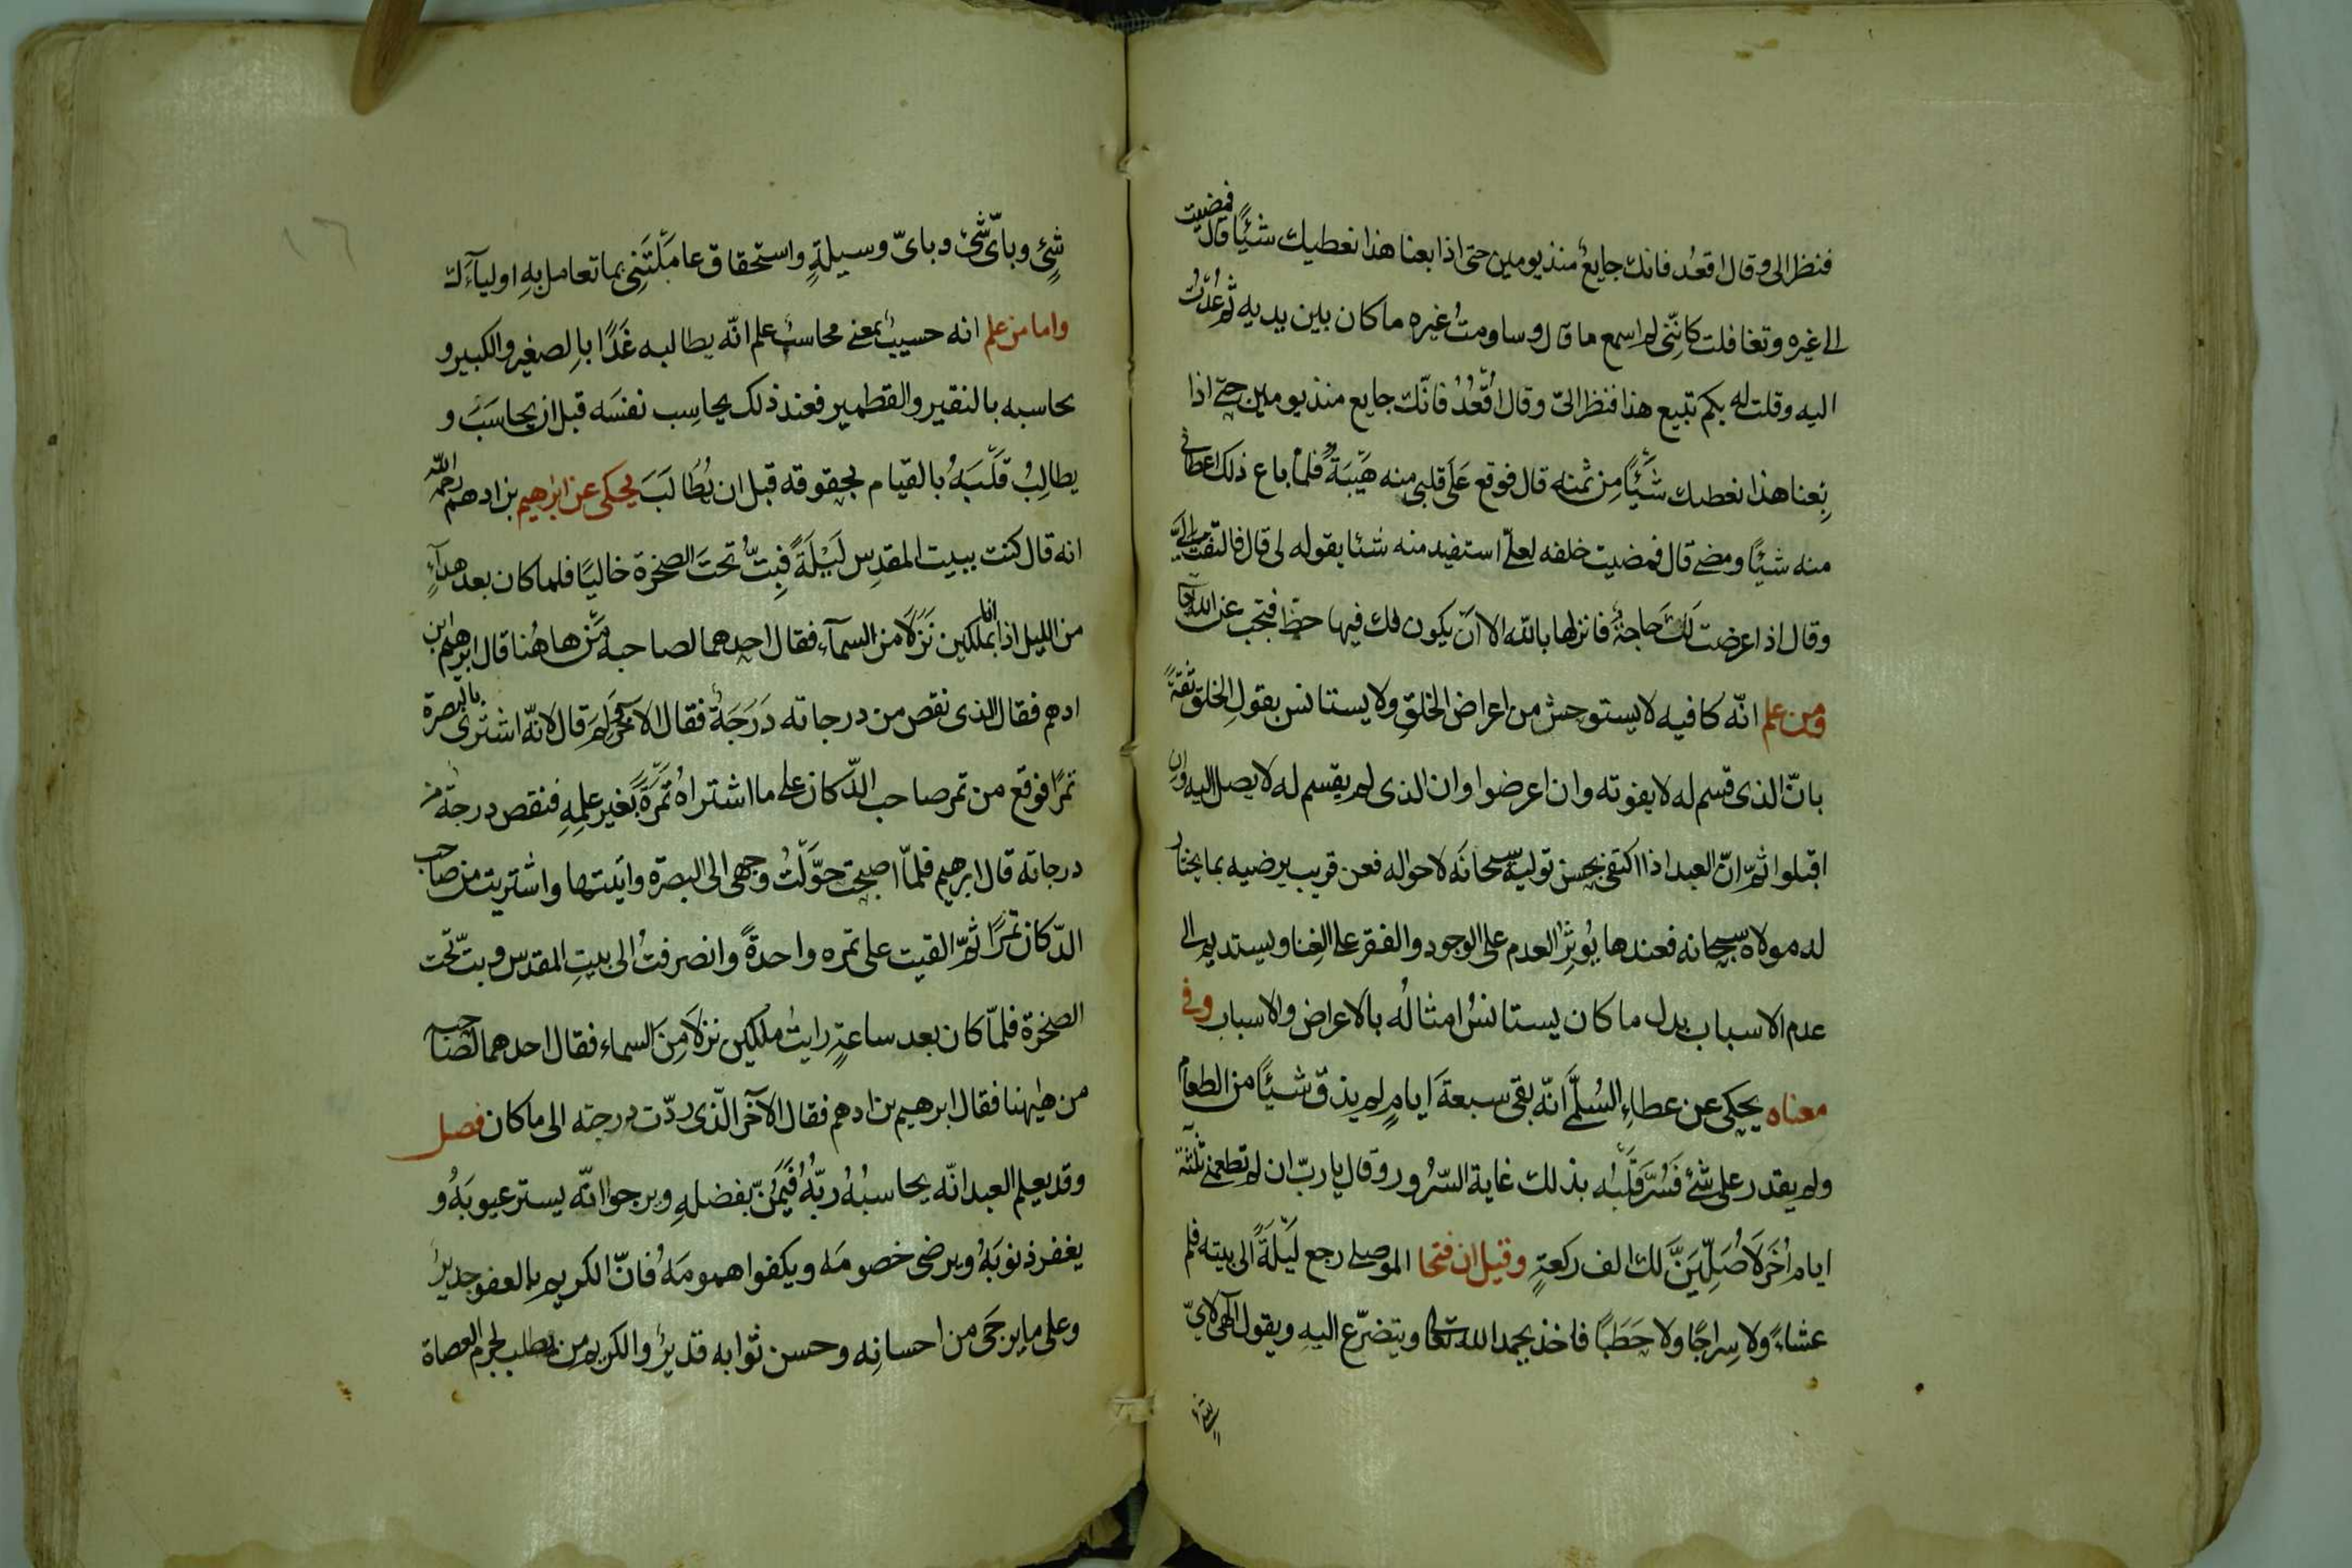 فنظر الى وقال اقعُد فانك جايع منذ يومين حتى اذا بعنا هذا نعطيك شيئًا قال فمضيت
الى غيره وتغافلت كانّني لم اسمع ما قال وساومتُ غيره ما كان بين يديه ثم عُدتُ
اليه وقلت له بكم تبيع هذا فنظر الىّ وقال اقعُدْ فانّك جايع منذ يومين حتى اذا
بِعنا هذا نعطيك شيئًا مِن ثمنه قال فوقع عَلَى قلبى منه هَيْبَةٌ فلما باع ذلك اعطانى
منه شيئًا ومضى قال فمضيت خلفه لعلّى استفيد منه شيئا بقوله لى قال فالتفت الىَّ
وقال اذا عرضت لكَ حَاجةٌ فانزلها بالله الا انّ يكون لك فيها حظّ فتحجب عن الله تعا
ومن علم انّه كافيه لا يستوحش من اعراض الخلقِ ولا يستانس بقولِ الخلق ثقةً
بانّ الذى قسم له لا يفوته وان اعرضوا وان الذى لم يقسم له لا يصل اليه وان
اقبلوا ثمّ انّ العبد اذا اكتفى بحسن توليه سبحانَه لاحواله فعن قريب يرضيه بما يختار
له مولاه سبحانه فعندها يُوثِرُ العدم على الوجود والفقر على الغِنا ويستديم الى
عدم الاسباب بدل ما كان يستانسُ امثالُه بالاعراض والاسباب وفى
معناه يحكى عن عطاءِ السُلَّمى انّه بقى سبعةَ ايامٍ لم يذق شيئًا من الطعام
ولم يقدر على شئ فَسُرَّ قَلْبُه بذلك غاية السّرُور وقال يا ربّ ان لم تطعمنى ثلثة
ايام اُخَرَ لَاُصَلِّيَنَّ لك الف ركعةٍ وقيل ان فتحا الموصلى رجع لَيْلَةً الى بيته فلم
عشاءً ولا سِراجًا ولا حَطَبًا فاخذ يحمد الله تعالى ويتضرّع اليهِ ويقول الٓهى لاىّ
شٍئ وبأىّ شئ وبأىّ وسيلةٍ واستحقاق عاملْتَنِى بما تعامل بهِ اولياۤءَك
واما من علم انه حسيبٌ بمعنى محاسبٌ علم انّه يطالبه غَدًا بالِصغير والكبير و
يحاسبه بالنقير والقطمير فعند ذلك يحاسِب نفسَه قبل ان يحاسَبَ و
يطالِبُ قَلْبَهُ بالقيام بحقوقه قبل ان يُطَالَبَ يحكى عن ابرٰهيم بن ادهم رحمه الله
انه قال كنت ببيت المقدِس لَيْلَةً فبِتُّ تحتَ الصخرة خاليًا فلما كان بعد هدآءٍ
من الليل اذا انا بملكين نَزَلَا من السمآء فقال احدهما لصاحبه مَن هاهُنا قال ابرهيم بن
ادهم فقال الذى نقص من درجاته دَرَجَةٌ فقال الآخر ولِمَ قال لانّه اشترى بالبصرة
تمرًا فوقع من تمر صاحب الدّكان على ما اشتراهُ تَمْرَةً بغير علمِهِ فنقص درجة من
درجاته قال ابرهيم فلمّا اصبحتُ حوَّلْتُ وجهى الى البصرة واَيتها واشتريت من صاحب
الدّكان تمرًا ثمَّ القيت على تمره واحدةً وانصرفتُ الى بيتِ المقدس وبتّ تحت
الصخرة فلمّا كان بعد ساعةٍ رايتُ ملكين نزلَا مِنَ السماء فقال احدهما لصاحبه
من هٰيهنا فقال ابرهيم بن ادهم فقال الآخر الّذى ردّت درجته الى ما كان فصل
وقد يعلم العبد انّه يحاسبُهُ ربُّهُ فَيَمُنّ بفضلهِ ويرجوا انّه يستر عيوبَهُ و
يغفر ذنوبَهُ ويرضى خصومَه ويكفوا همومَهُ فانّ الكريم بالعفو جديرٌ
وعلى ما يرجَى من احسانِه وحسن ثوابه قديرٌ والكريم من يطلب لجرم العصاة